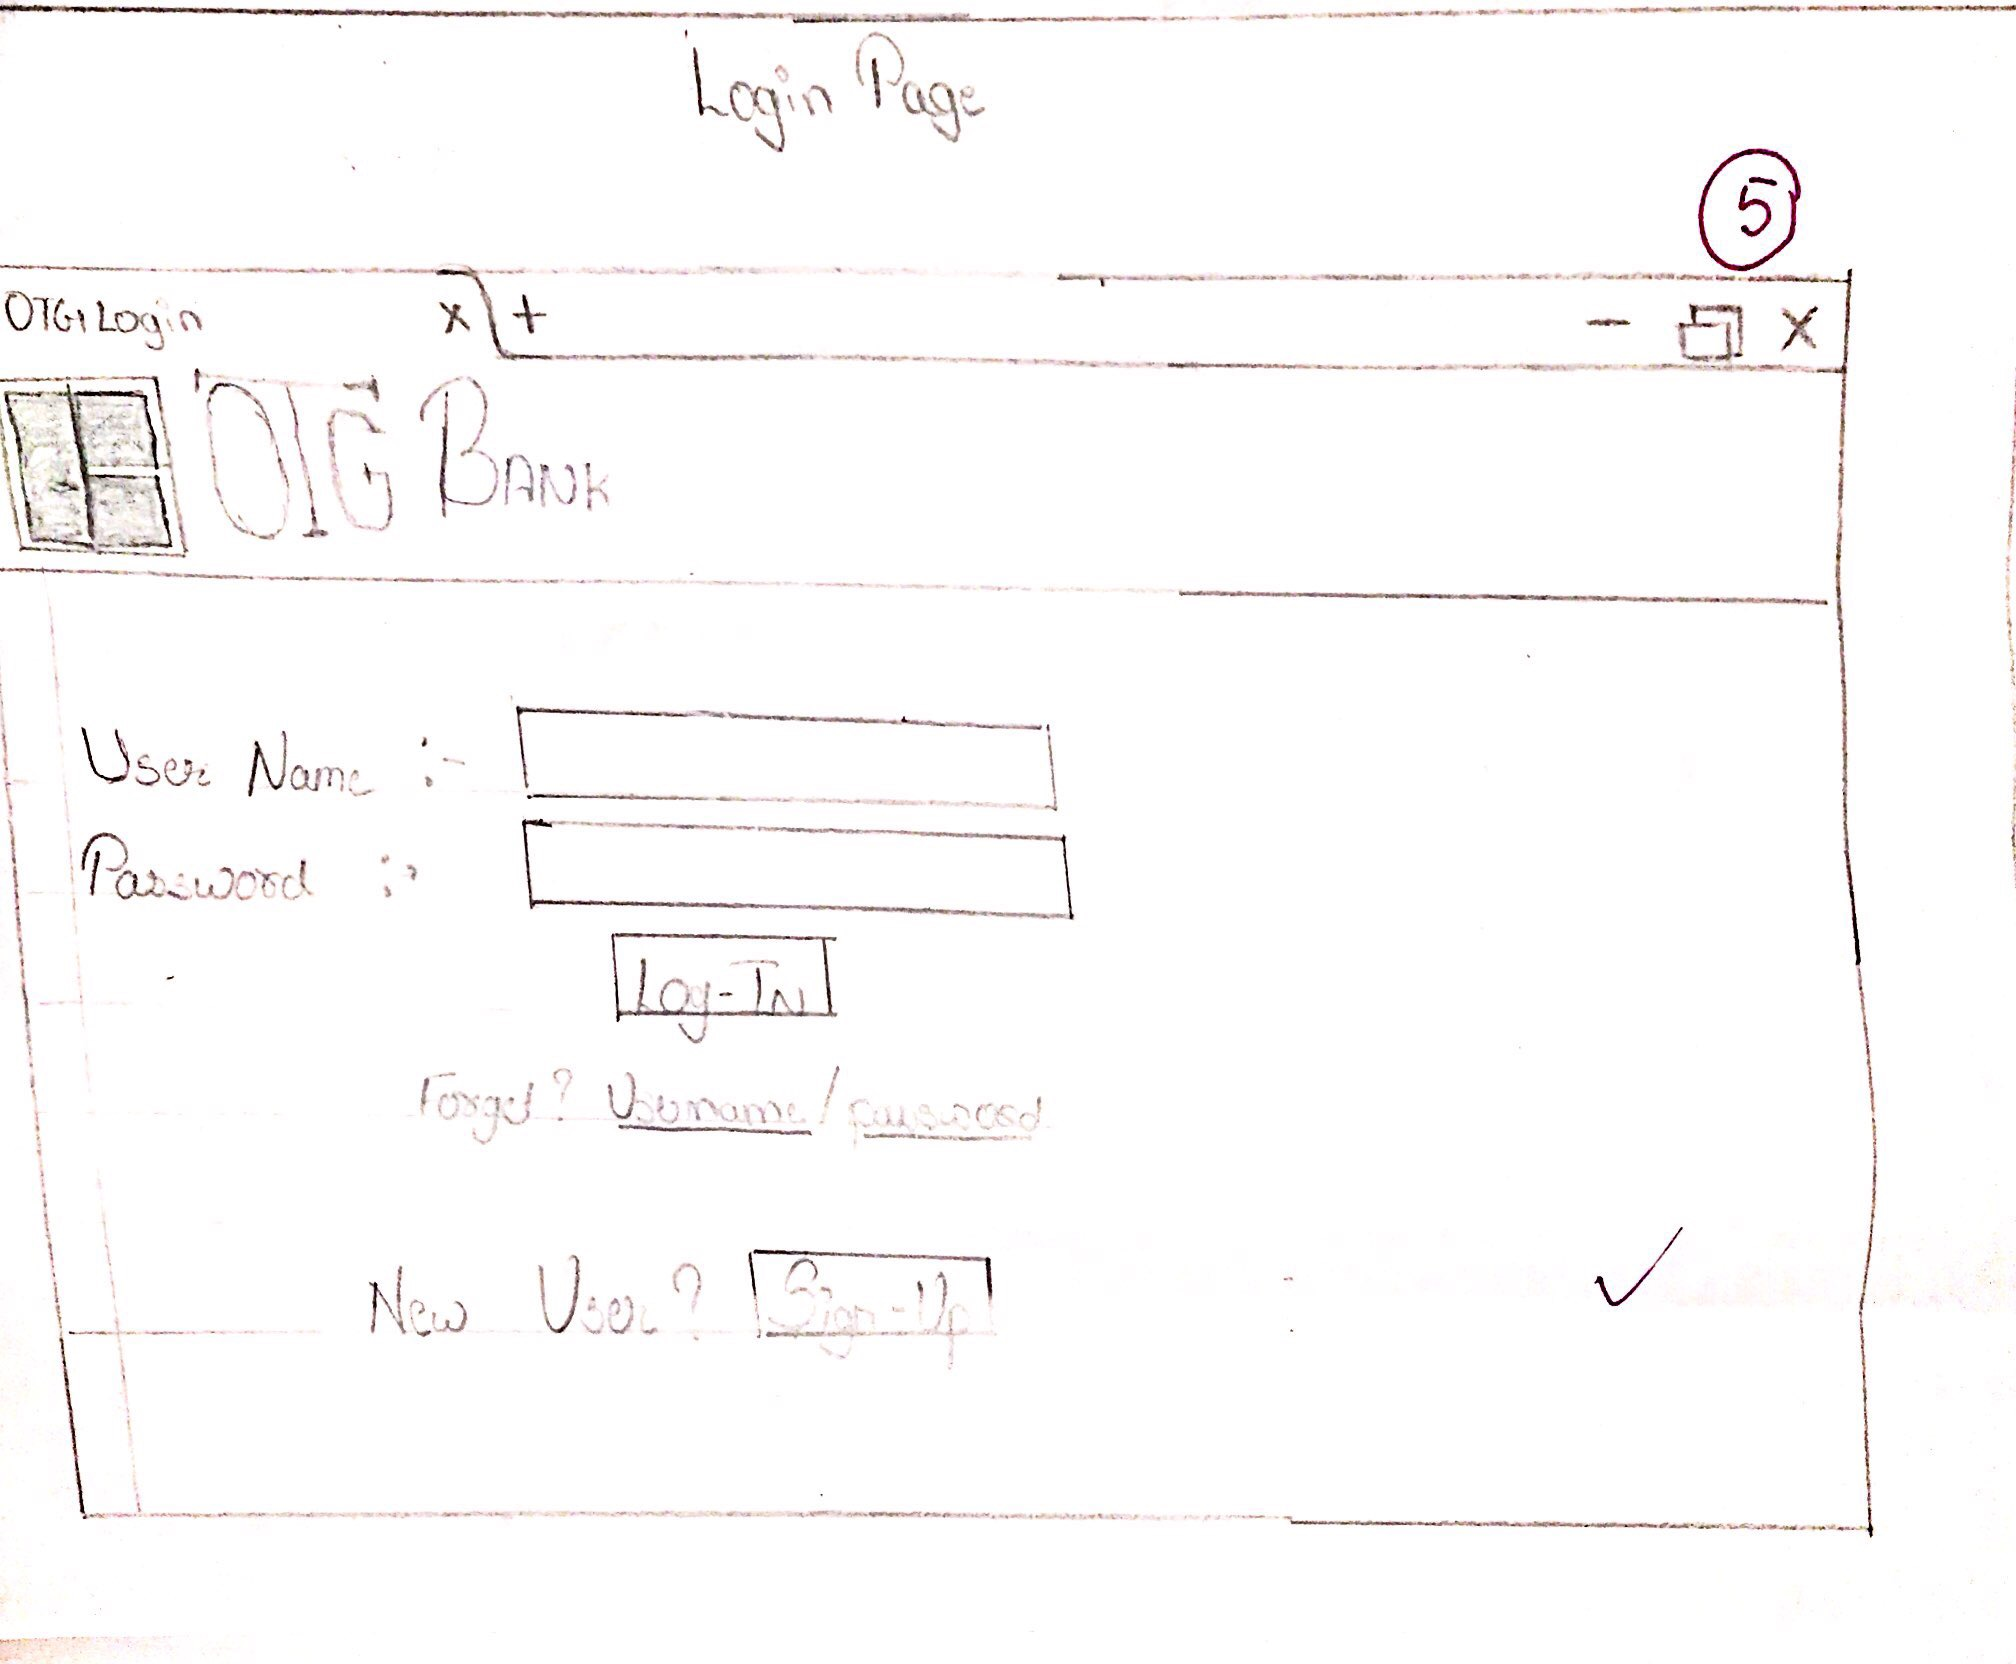 Login Page
5
OTG Login x + - x
OTG BANK
User Name :-
Password :-
Log-IN
Forget? Username/password
New User? Sign-Up